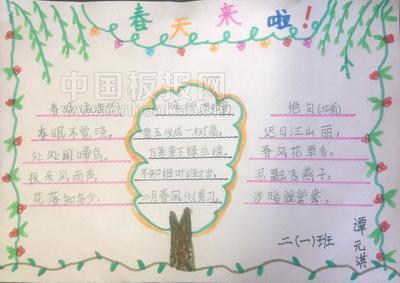 春天来啦！
中国板报网
春晓(孟浩然)
春眠不觉晓，
处处闻啼鸟。
夜来风雨声，
花落知多少。
碧玉妆成一树高，
万条垂下绿丝绦。
不知细叶谁裁出，
二月春风似剪刀。
绝句(杜甫)
迟日江山丽，
春风花草香。
泥融飞燕子，
沙暖睡鸳鸯。
二(一)班
谭元淇